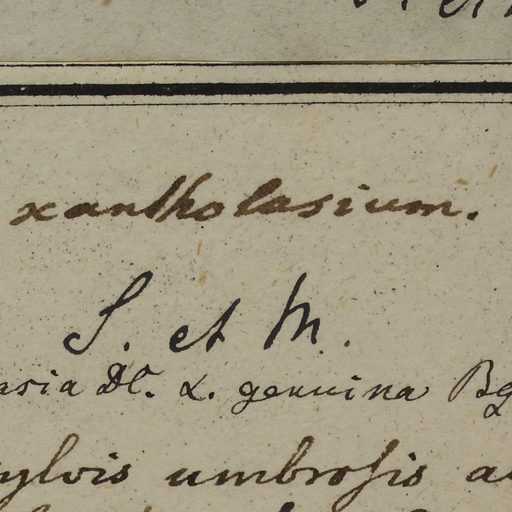 xantholasium.
S. et M.
asia DC. α. genuina Bg
ylvis umbrosis a